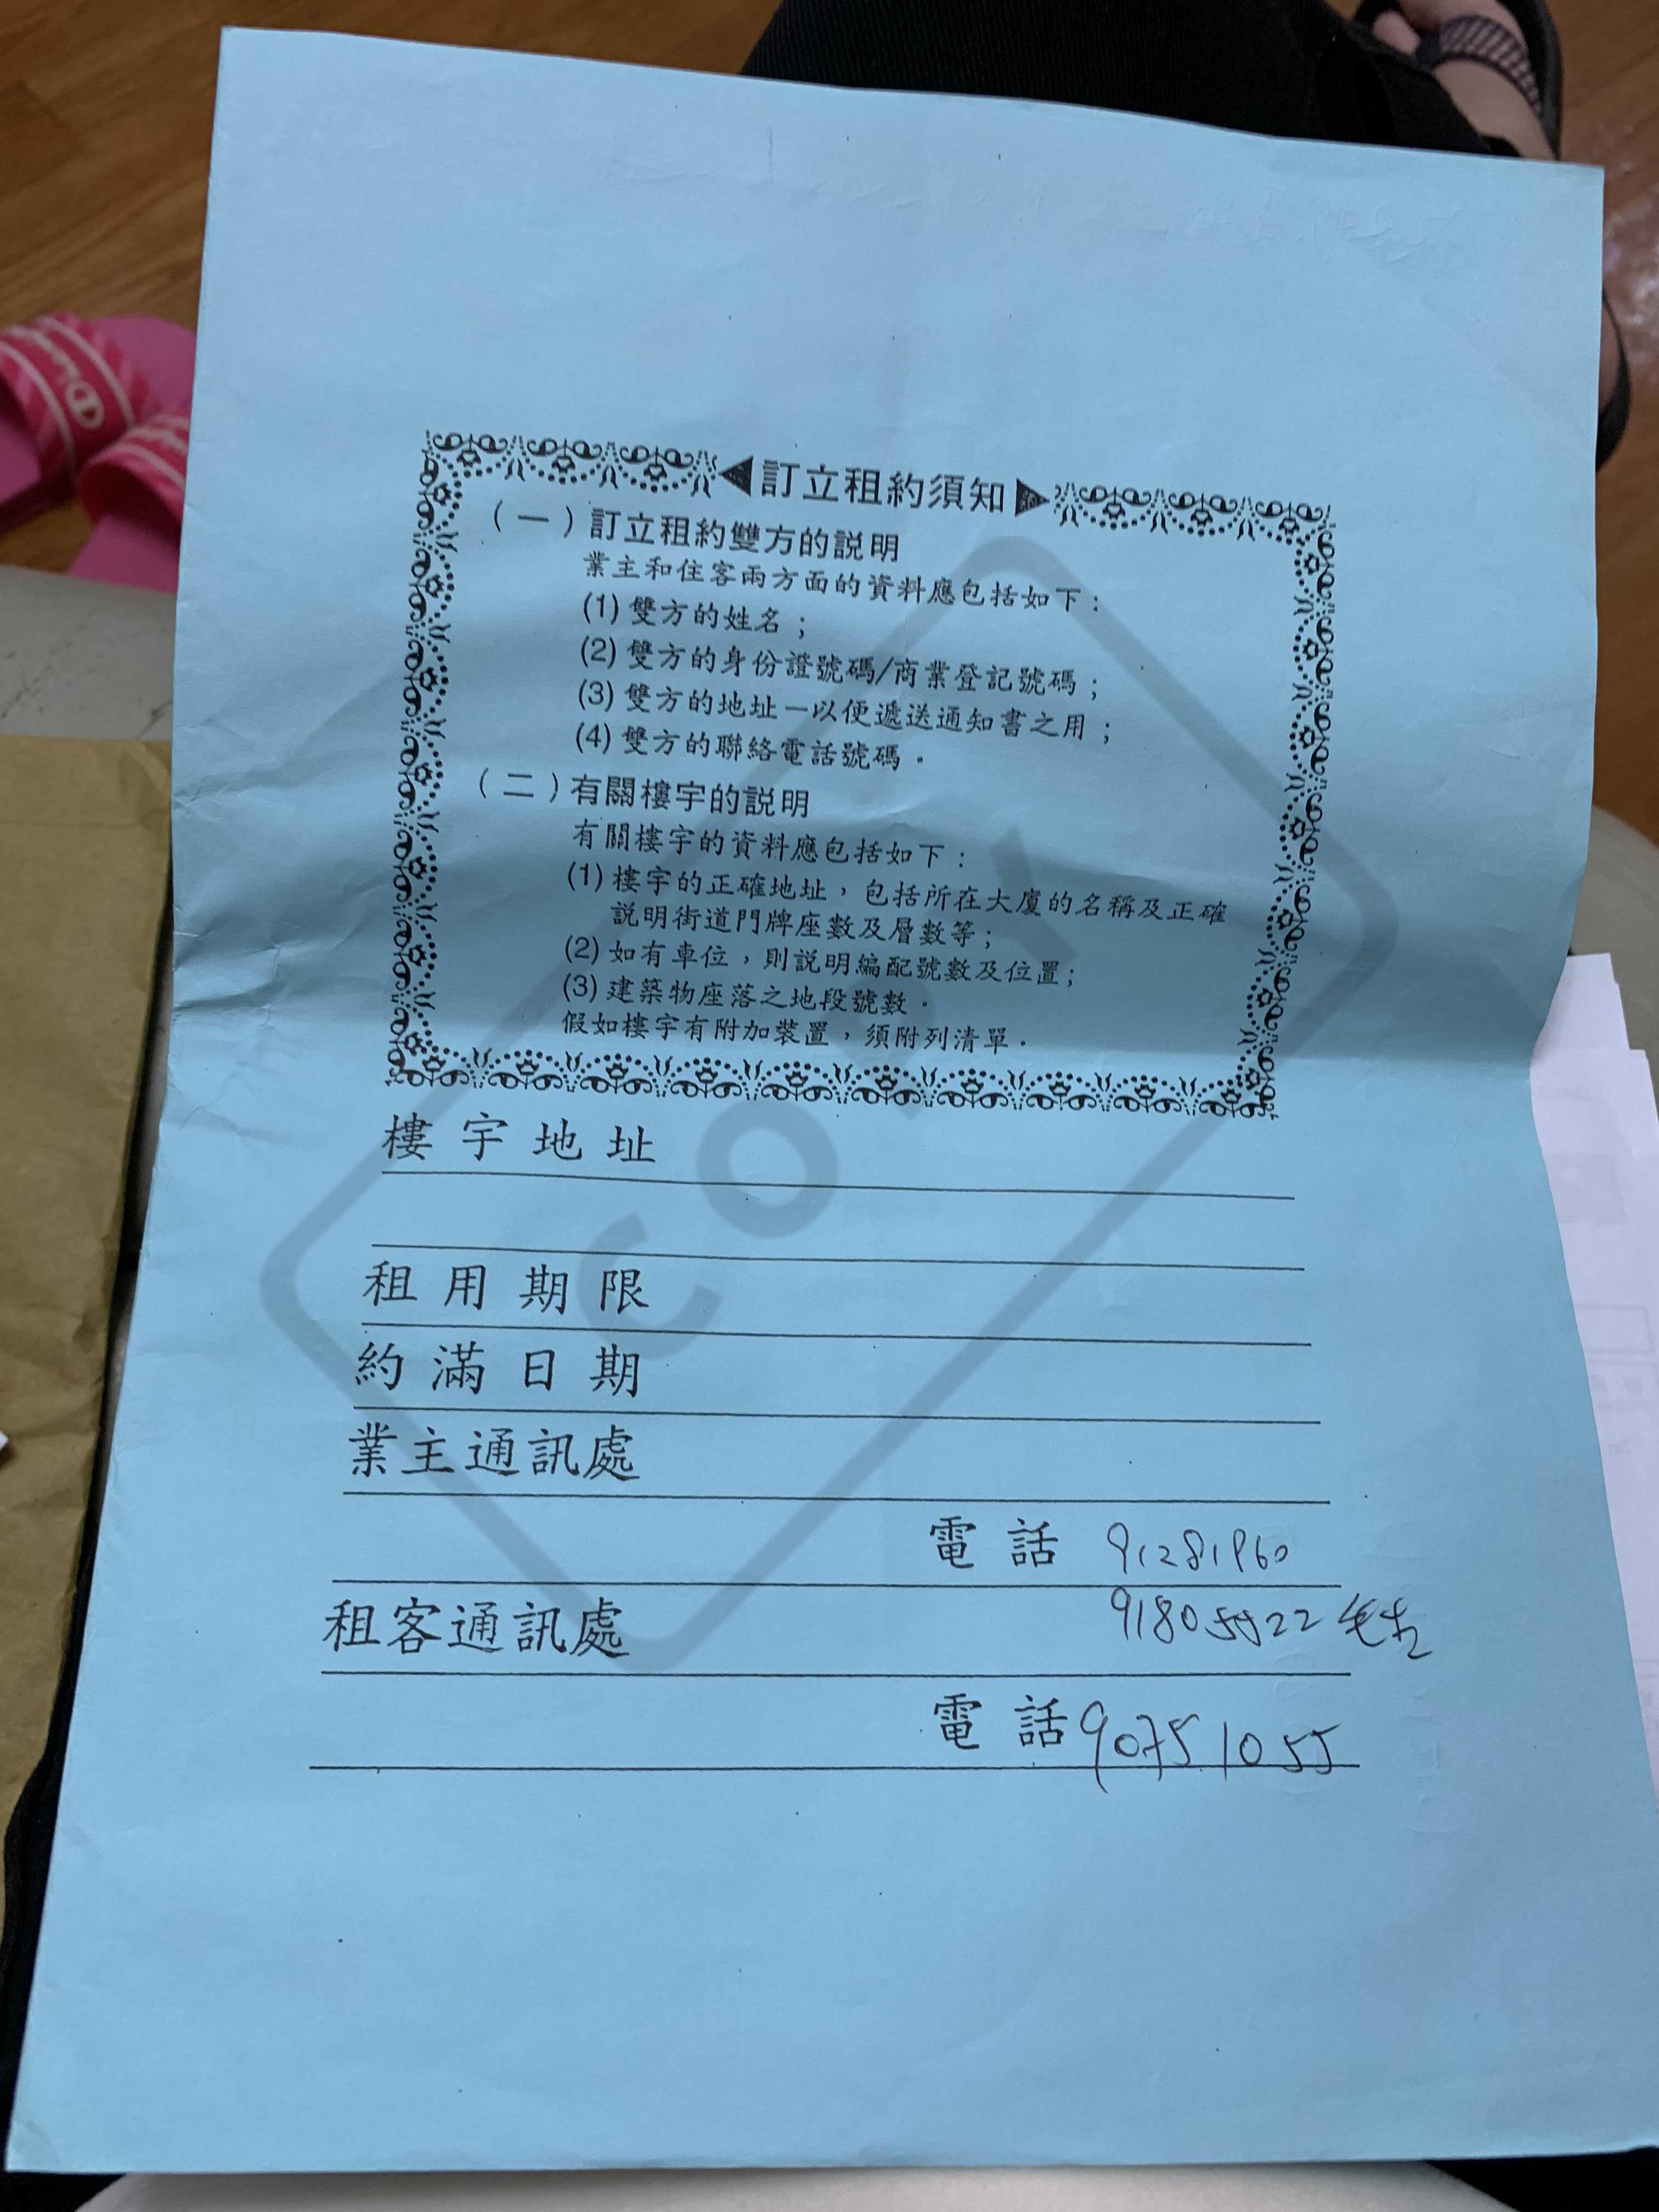 訂立租約須知
（一）訂立租約雙方的説明
業主和住客兩方面的資料應包括如下：
(1) 雙方的姓名；
(2) 雙方的身份證號碼/商業登記號碼；
(3) 雙方的地址－以便遞送通知書之用；
(4) 雙方的聯絡電話號碼。
（二）有關樓宇的説明
有關樓宇的資料應包括如下：
(1) 樓宇的正確地址，包括所在大廈的名稱及正確
説明街道門牌座數及層數等；
(2) 如有車位，則説明編配號數及位置；
(3) 建築物座落之地段號數。
假如樓宇有附加裝置，須附列清單。
樓宇地址
租用期限
約滿日期
業主通訊處
電話 91281960
91805522
租客通訊處
電話 90751055
COPY